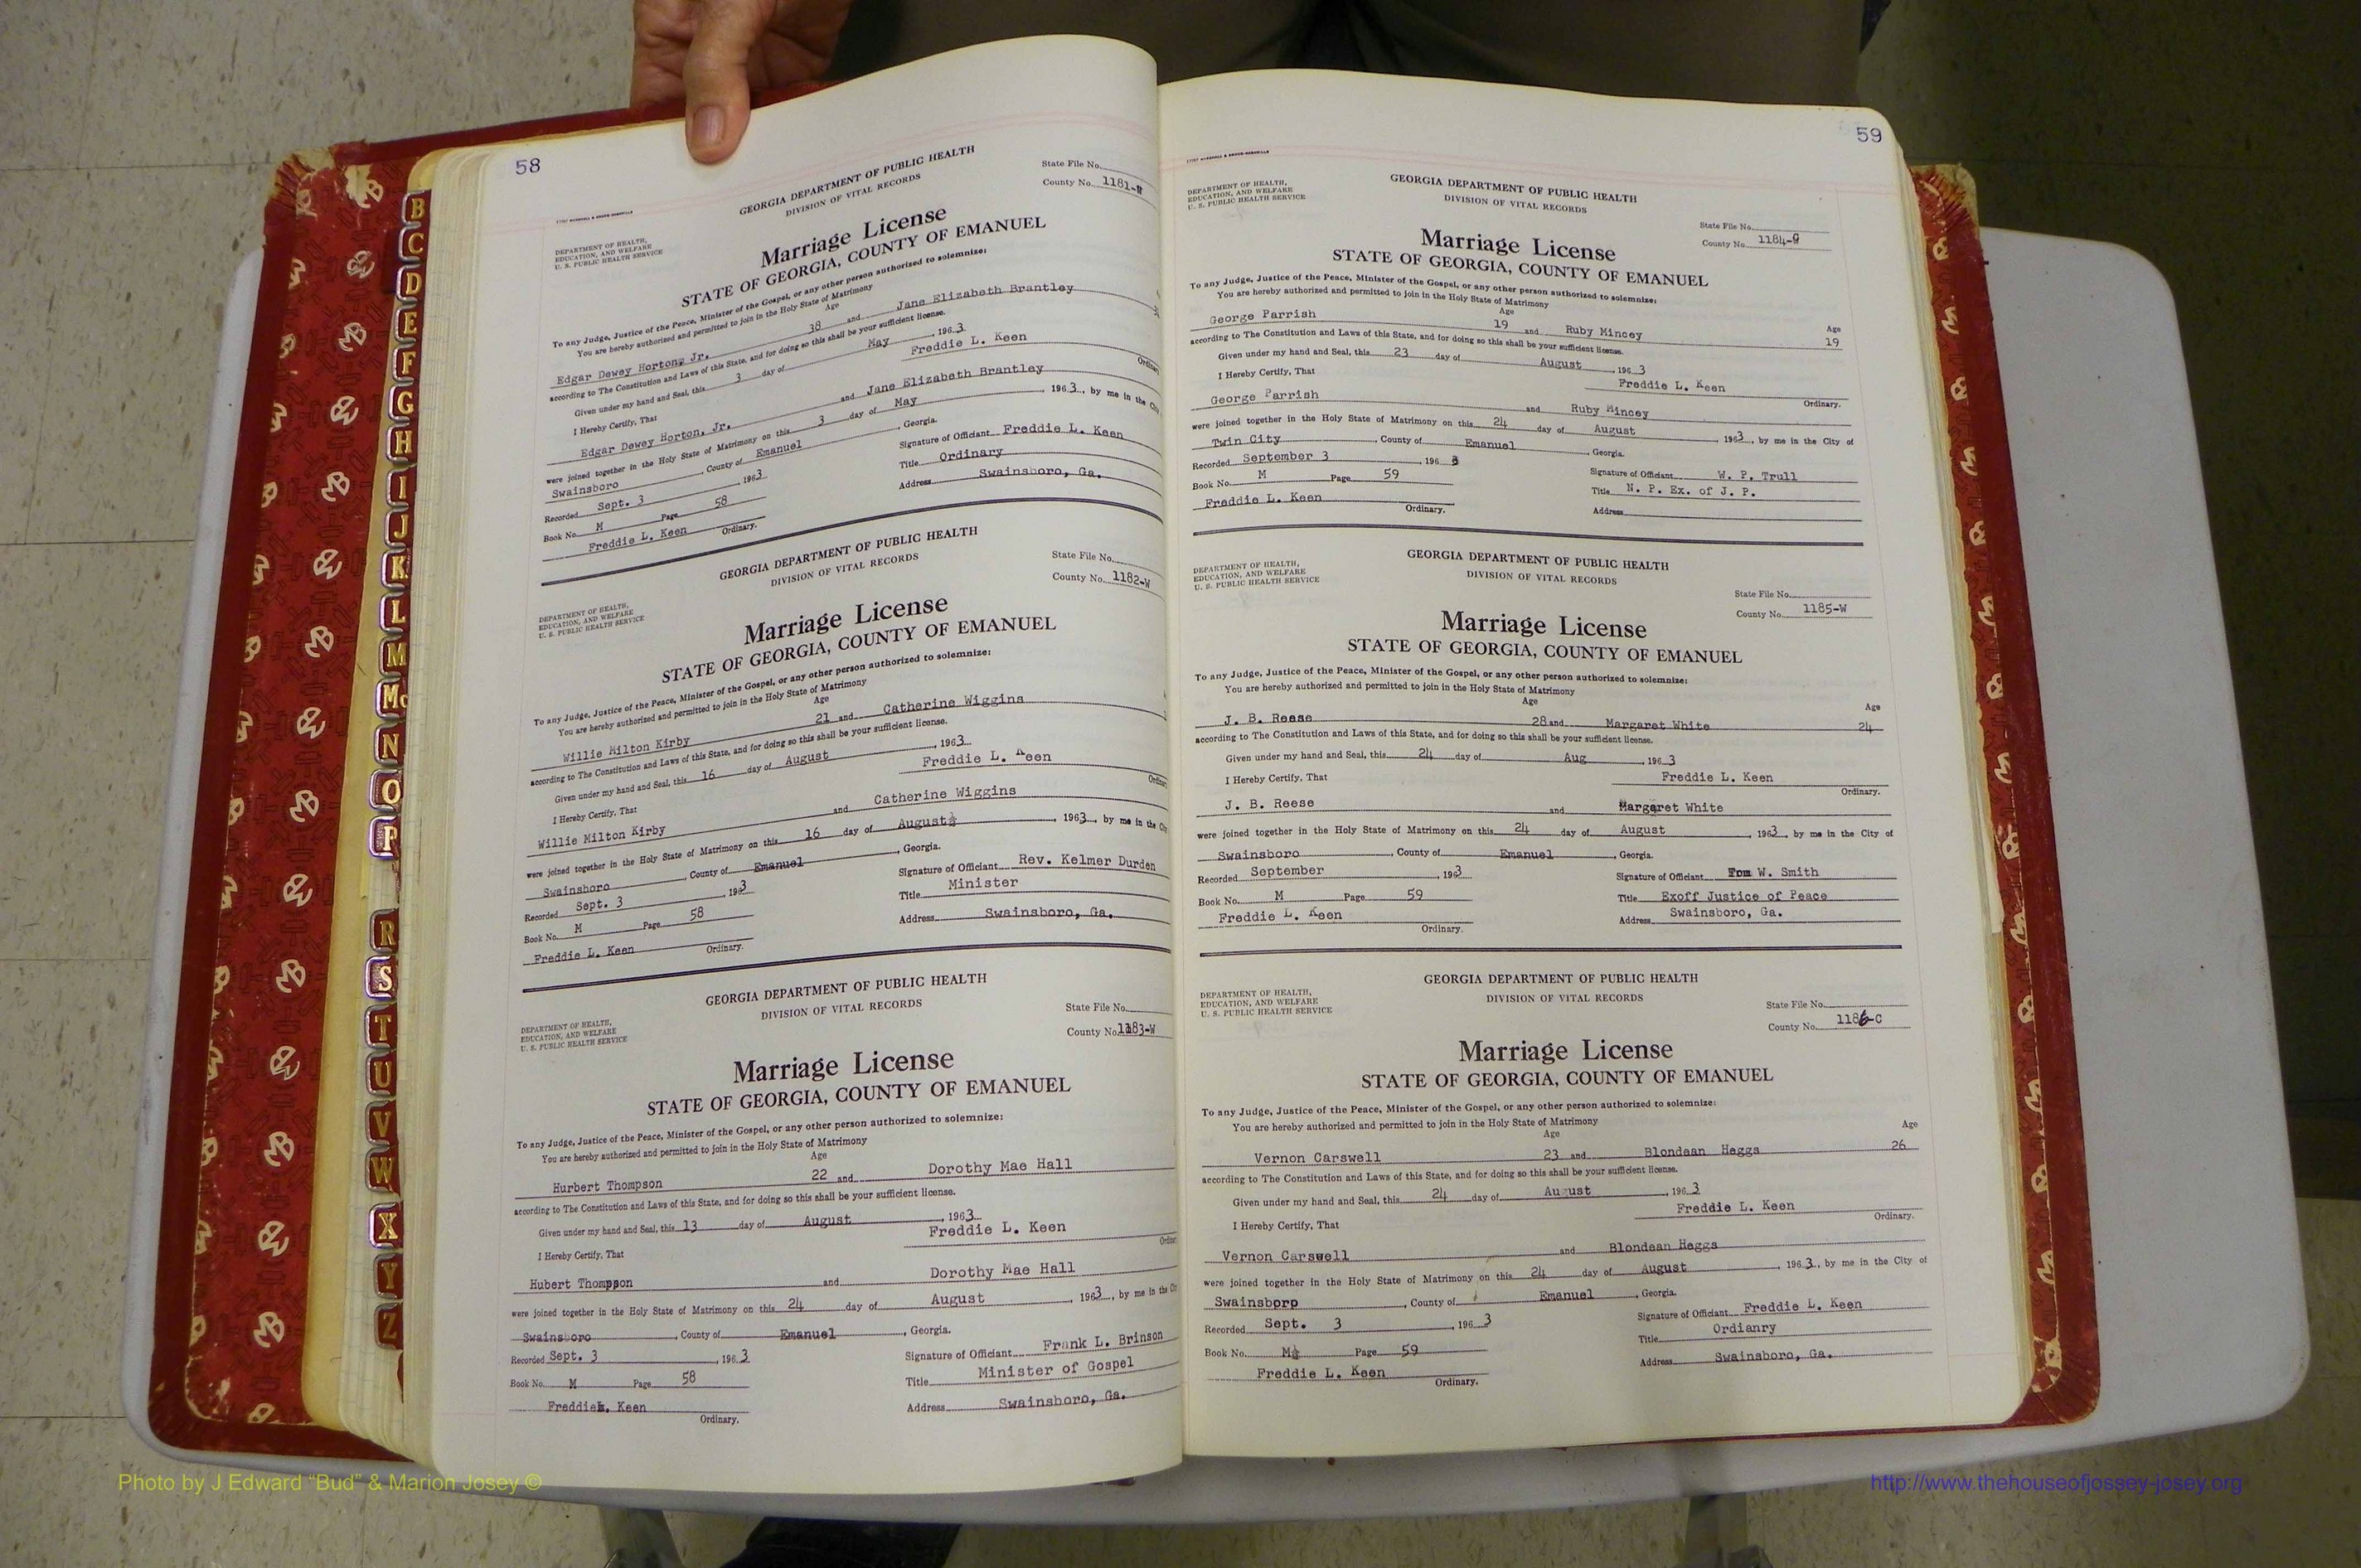 58
17707 MARSHALL & BRUCE-NASHVILLE
DEPARTMENT OF HEALTH,
EDUCATION, AND WELFARE
U. S. PUBLIC HEALTH SERVICE
GEORGIA DEPARTMENT OF PUBLIC HEALTH
DIVISION OF VITAL RECORDS
State File No.
County No. 1181-W
Marriage License
STATE OF GEORGIA, COUNTY OF EMANUEL
To any Judge, Justice of the Peace, Minister of the Gospel, or any other person authorized to solemnize:
You are hereby authorized and permitted to join in the Holy State of Matrimony
Age
Edgar Dewey Horton, Jr. 38 and Jane Elizabeth Brantley
according to The Constitution and Laws of this State, and for doing so this shall be your sufficient license.
Given under my hand and Seal, this 3 day of May, 1963
I Hereby Certify, That Freddie L. Keen
Edgar Dewey Horton, Jr. and Jane Elizabeth Brantley
were joined together in the Holy State of Matrimony on this 3 day of May, 1963, by me in the
Swainsboro, County of Emanuel, Georgia.
Recorded Sept. 3, 1963 Signature of Officiant Freddie L. Keen
Book No. M Page 58 Title Ordinary
Freddie L. Keen Ordinary. Address Swainsboro, Ga.
GEORGIA DEPARTMENT OF PUBLIC HEALTH
DIVISION OF VITAL RECORDS
DEPARTMENT OF HEALTH,
EDUCATION, AND WELFARE
U. S. PUBLIC HEALTH SERVICE
State File No.
County No. 1182-W
Marriage License
STATE OF GEORGIA, COUNTY OF EMANUEL
To any Judge, Justice of the Peace, Minister of the Gospel, or any other person authorized to solemnize:
You are hereby authorized and permitted to join in the Holy State of Matrimony
Age
Willie Milton Kirby 21 and Catherine Wiggins
according to The Constitution and Laws of this State, and for doing so this shall be your sufficient license.
Given under my hand and Seal, this 16 day of August, 1963
I Hereby Certify, That Freddie L. Keen
Willie Milton Kirby and Catherine Wiggins
were joined together in the Holy State of Matrimony on this 16 day of August, 1963, by me in the
Swainsboro, County of Emanuel, Georgia.
Recorded Sept. 3, 1963 Signature of Officiant Rev. Kelmer Durden
Book No. M Page 58 Title Minister
Freddie L. Keen Ordinary. Address Swainsboro, Ga.
GEORGIA DEPARTMENT OF PUBLIC HEALTH
DIVISION OF VITAL RECORDS
DEPARTMENT OF HEALTH,
EDUCATION, AND WELFARE
U. S. PUBLIC HEALTH SERVICE
State File No.
County No. 1183-W
Marriage License
STATE OF GEORGIA, COUNTY OF EMANUEL
To any Judge, Justice of the Peace, Minister of the Gospel, or any other person authorized to solemnize:
You are hereby authorized and permitted to join in the Holy State of Matrimony
Age
Hurbert Thompson 22 and Dorothy Mae Hall
according to The Constitution and Laws of this State, and for doing so this shall be your sufficient license.
Given under my hand and Seal, this 13 day of August, 1963
I Hereby Certify, That Freddie L. Keen
Hubert Thompson and Dorothy Mae Hall
were joined together in the Holy State of Matrimony on this 24 day of August, 1963, by me in the
Swainsboro, County of Emanuel, Georgia.
Recorded Sept. 3, 1963 Signature of Officiant Frank L. Brinson
Book No. M Page 58 Title Minister of Gospel
Freddie L. Keen Ordinary. Address Swainsboro, Ga.
59
17707 MARSHALL & BRUCE-NASHVILLE
DEPARTMENT OF HEALTH,
EDUCATION, AND WELFARE
U. S. PUBLIC HEALTH SERVICE
GEORGIA DEPARTMENT OF PUBLIC HEALTH
DIVISION OF VITAL RECORDS
State File No.
County No. 1184-
Marriage License
STATE OF GEORGIA, COUNTY OF EMANUEL
To any Judge, Justice of the Peace, Minister of the Gospel, or any other person authorized to solemnize:
You are hereby authorized and permitted to join in the Holy State of Matrimony
Age Age
George Parrish 19 and Ruby Mincey 19
according to The Constitution and Laws of this State, and for doing so this shall be your sufficient license.
Given under my hand and Seal, this 23 day of August, 1963
I Hereby Certify, That Freddie L. Keen
Ordinary.
George Parrish and Ruby Mincey
were joined together in the Holy State of Matrimony on this 24 day of August, 1963, by me in the City of
Twin City, County of Emanuel, Georgia.
Recorded September 3, 1963 Signature of Officiant W. P. Trull
Book No. M Page 59 Title N. P. Ex. of J. P.
Freddie L. Keen Ordinary. Address
DEPARTMENT OF HEALTH,
EDUCATION, AND WELFARE
U. S. PUBLIC HEALTH SERVICE
GEORGIA DEPARTMENT OF PUBLIC HEALTH
DIVISION OF VITAL RECORDS
State File No.
County No. 1185-W
Marriage License
STATE OF GEORGIA, COUNTY OF EMANUEL
To any Judge, Justice of the Peace, Minister of the Gospel, or any other person authorized to solemnize:
You are hereby authorized and permitted to join in the Holy State of Matrimony
Age Age
J. B. Reese 28 and Margaret White 24
according to The Constitution and Laws of this State, and for doing so this shall be your sufficient license.
Given under my hand and Seal, this 24 day of Aug, 1963
I Hereby Certify, That Freddie L. Keen
Ordinary.
J. B. Reese and Margaret White
were joined together in the Holy State of Matrimony on this 24 day of August, 1963, by me in the City of
Swainsboro, County of Emanuel, Georgia.
Recorded September, 1963 Signature of Officiant Tom W. Smith
Book No. M Page 59 Title Exoff Justice of Peace
Freddie L. Keen Address Swainsboro, Ga.
Ordinary.
GEORGIA DEPARTMENT OF PUBLIC HEALTH
DIVISION OF VITAL RECORDS
DEPARTMENT OF HEALTH,
EDUCATION, AND WELFARE
U. S. PUBLIC HEALTH SERVICE
State File No.
County No. 1186-C
Marriage License
STATE OF GEORGIA, COUNTY OF EMANUEL
To any Judge, Justice of the Peace, Minister of the Gospel, or any other person authorized to solemnize:
You are hereby authorized and permitted to join in the Holy State of Matrimony
Age Age
Vernon Carswell 23 and Blondean Heggs 26
according to The Constitution and Laws of this State, and for doing so this shall be your sufficient license.
Given under my hand and Seal, this 24 day of August, 1963
I Hereby Certify, That Freddie L. Keen
Ordinary.
Vernon Carswell and Blondean Heggs
were joined together in the Holy State of Matrimony on this 24 day of August, 1963, by me in the City of
Swainsboro, County of Emanuel, Georgia.
Recorded Sept. 3, 1963 Signature of Officiant Freddie L. Keen
Book No. M Page 59 Title Ordianry
Freddie L. Keen Ordinary. Address Swainsboro, Ga.
B
C
D
E
F
G
H
I
J
K
L
M
Mc
N
O
P
R
S
T
U
V
W
X
Y
Z
Photo by J Edward “Bud” & Marion Josey ©
http://www.thehouseofjossey-josey.org